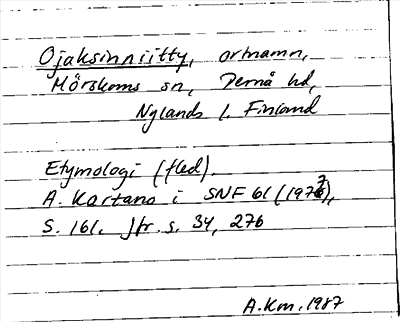 Ojaksinniitty, ortnamn,
Mörskoms sn, Pernå hd,
Nylands l. Finland
Etymologi (fled).
A. Kartano i SNF 61 (1977),
S. 161. Jfr s. 34, 276
A.Km. 1987